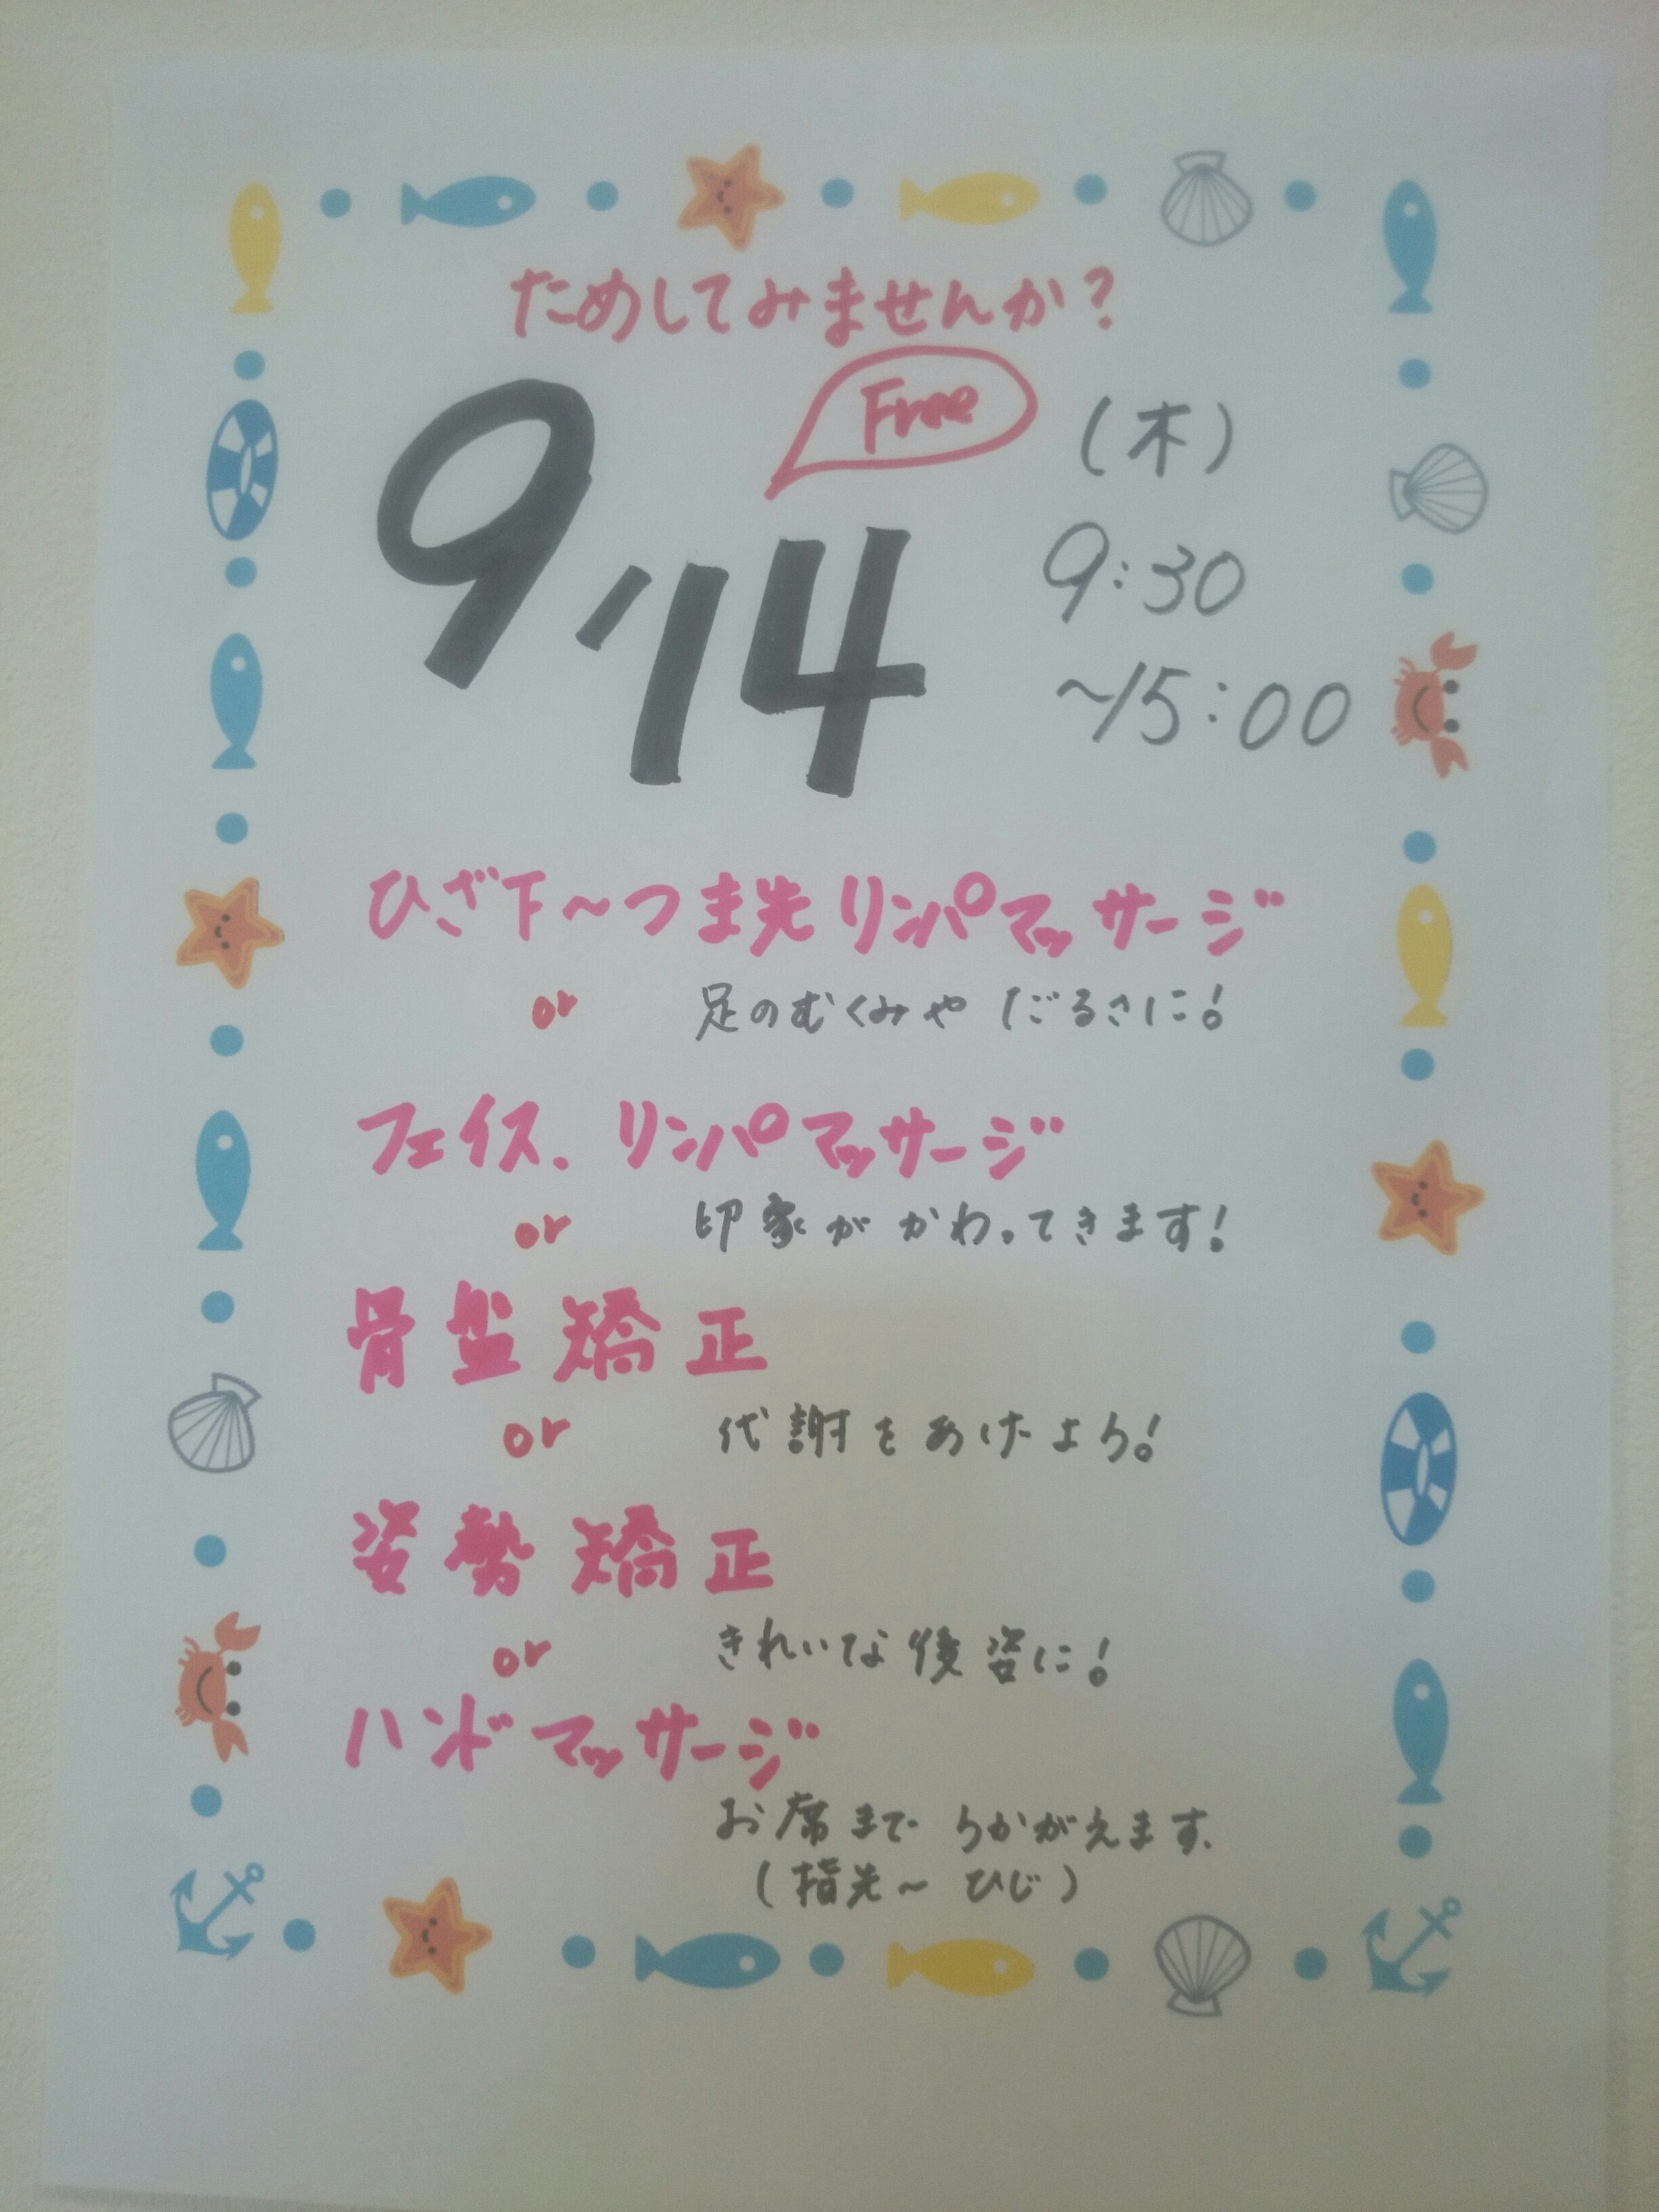 ためしてみませんか?
Free
9/14 (木)
9:30
~15:00
ひざ下~つま先リンパマッサージ
or 足のむくみやだるさに!
フェイス.リンパマッサージ
or 印象がかわってきます!
骨盤矯正
or 代謝をあげよう!
姿勢矯正
or きれいな後姿に!
ハンドマッサージ
お席までうかがえます.
(指先~ひじ)